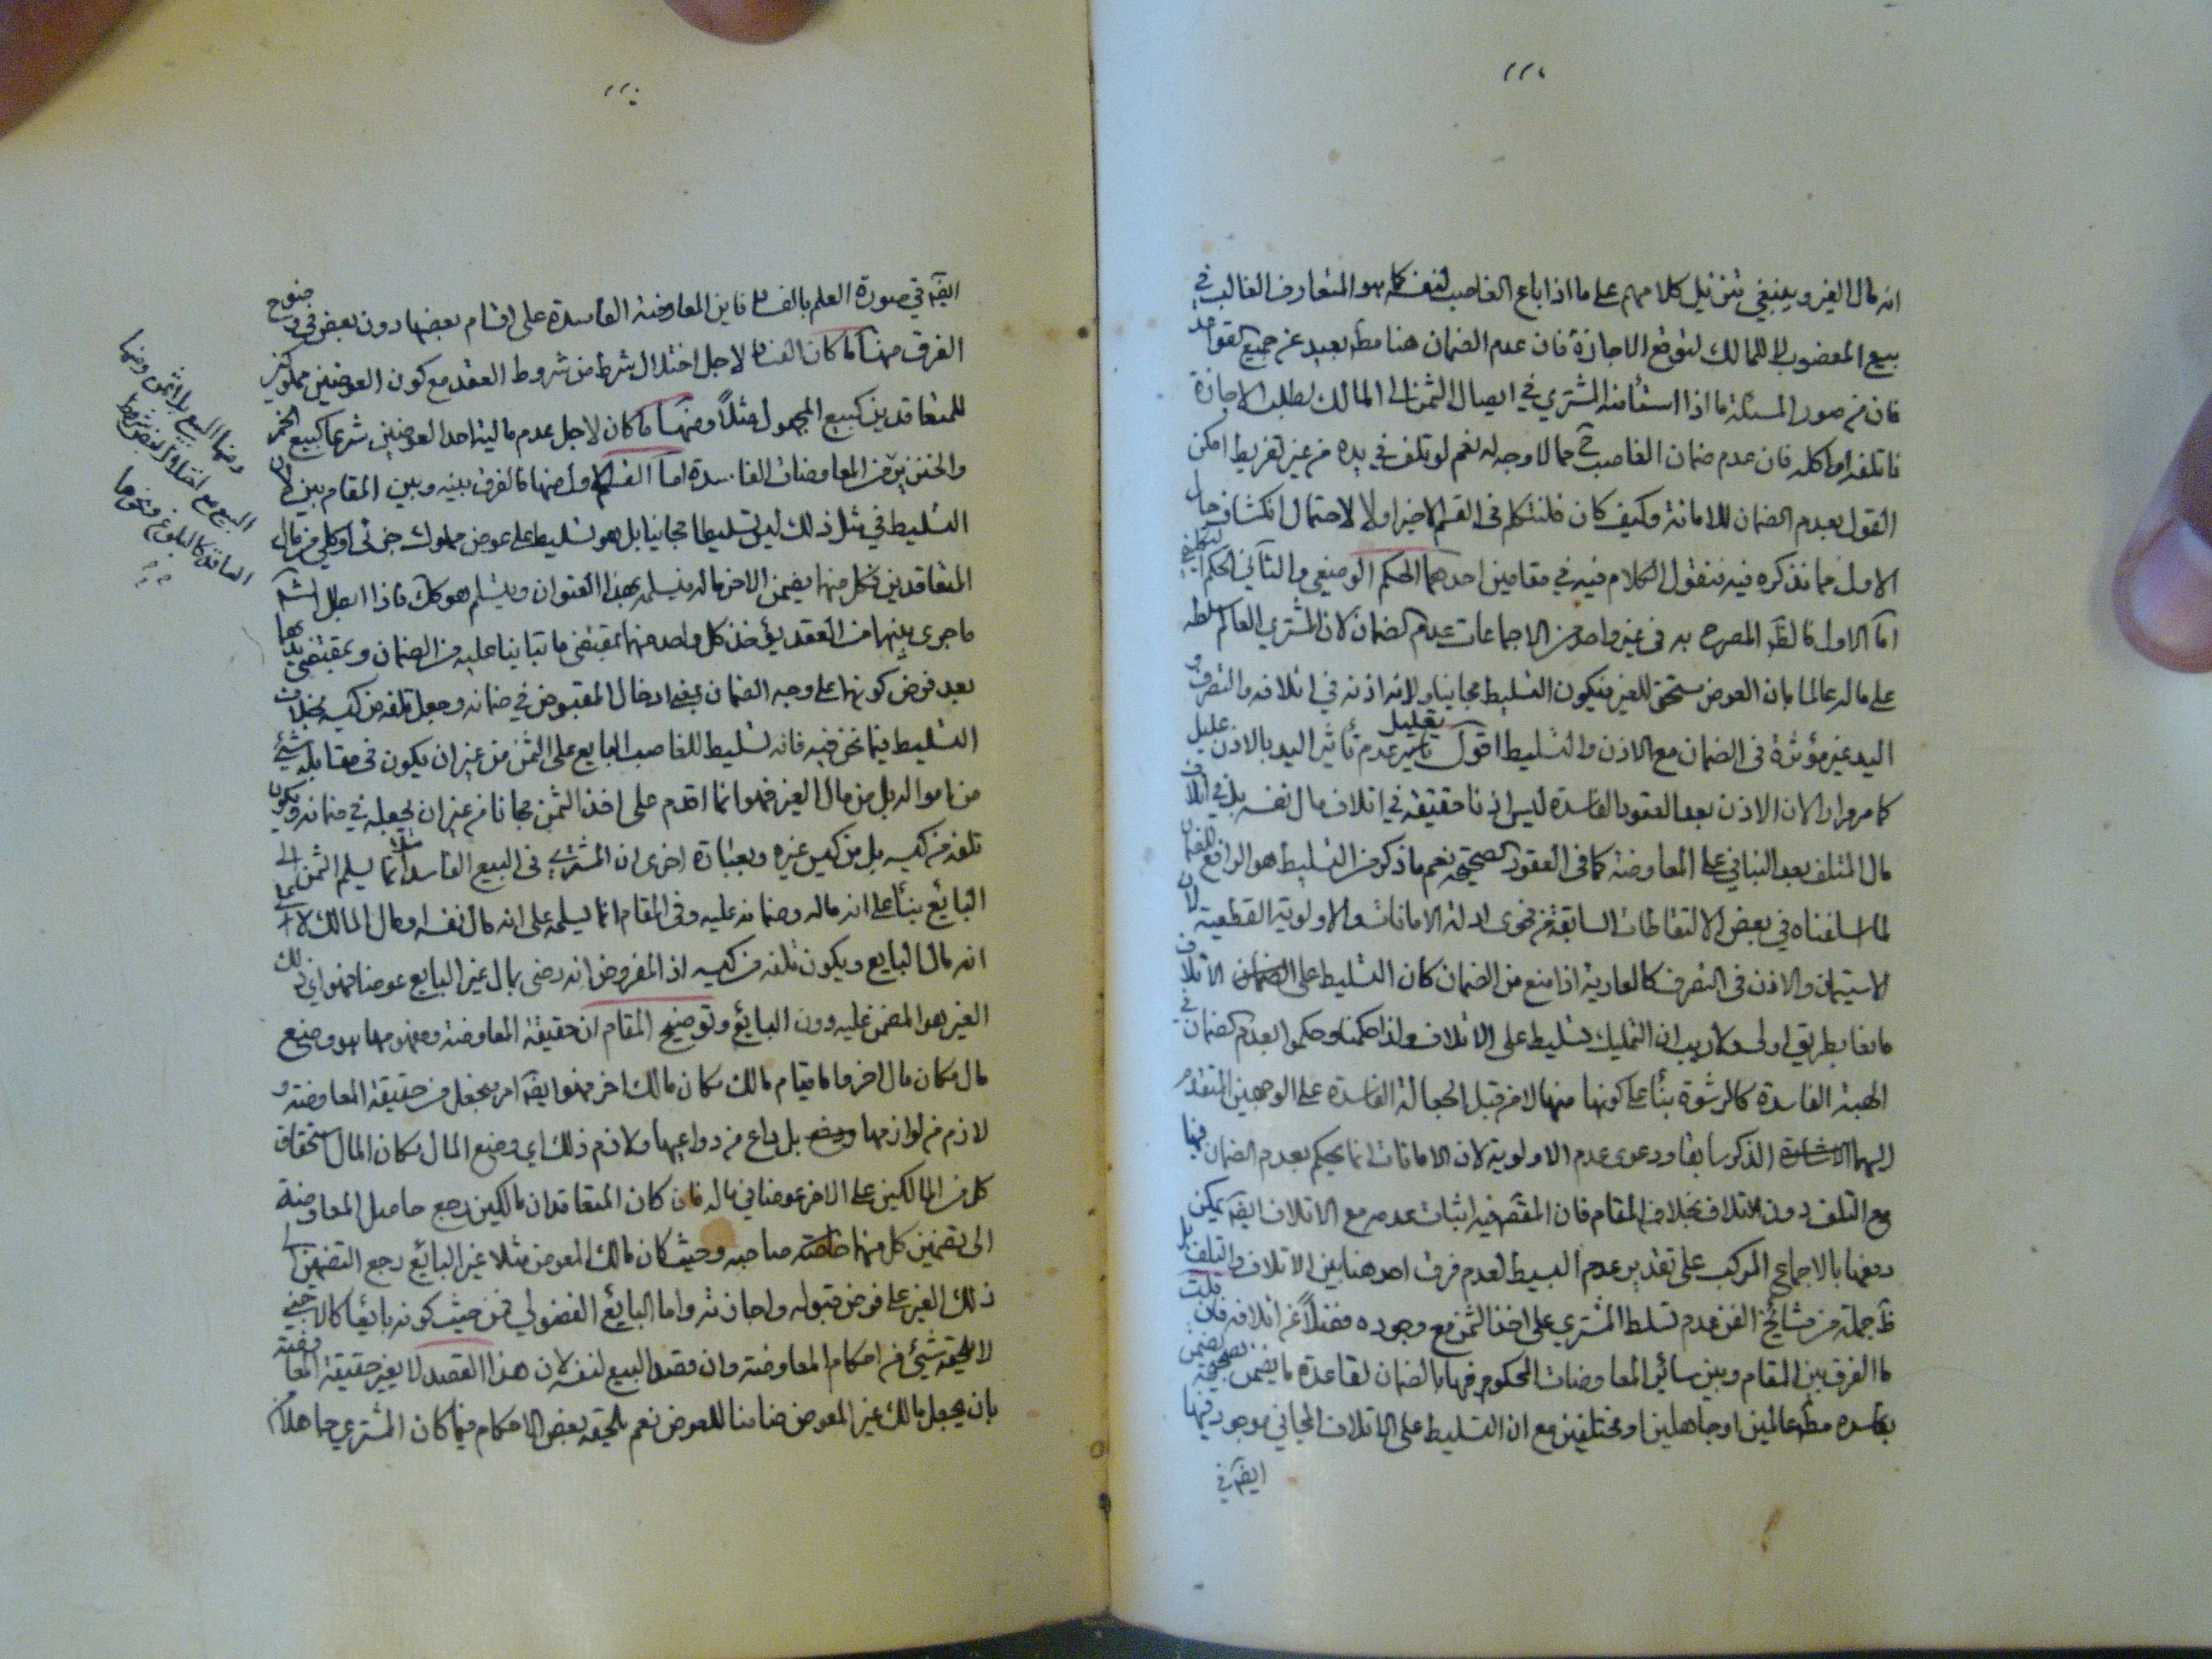 انه مال الغير وينبغي تنزيل كلامهم على ما اذا باع الغاصب لنفسه كما هو المتعارف الغالب في
بيع المغصوب لا للمالك لتوقع الاجازة فان عدم الضمان هنا مط بعيد عن جميع القواعد
فان من صور المسئلة ما اذا استأمنه المشتري في ايصال الثمن الى المالك لطلب الاجازة
فاتلفه او اكله فان عدم ضمان الغاصب ح مما لا وجه له نعم لو تلف في يده من غير تفريط امكن
القول بعدم الضمان للامانة وكيف كان فلنتكلم في القسم الاخير اولا لاحتمال انكشاف حال
الاول مما نذكره فيه فنقول الكلام فيه في مقامين احدهما الحكم الوضعي والثاني الحكم التكليفي
اما الاول فالظ المصرح به في غير واحد من الاجماعات عدم الضمان لان المشتري العالم سلطه
على ماله عالما بان العوض مستحق للغير فيكون التسليط مجانيا ولانه اذنه في اتلافه والتصرف و
اليد غير مؤثرة في الضمان مع الاذن والتسليط اقول تعليل عدم تأثير اليد بالاذن عليل
كما مر مرارا لان الاذن بعد العقود الفاسدة ليس اذنا حقيقة في اتلاف مال نفسه بل في اتلاف
مال المتلف بعد التباني على المعاوضة كما في العقود الصحيحة نعم ما ذكر من التسليط هو الرافع للضمان
لما اسلفناه في بعض الالتقاطات السابقة من فحوى ادلة الامانات والاولوية القطعية لان
الاستيمان والاذن في التصرف كالعارية اذا منع من الضمان كان التسليط على الاتلاف
مانعا بطريق اولى ولا ريب ان التمليك تسليط على الاتلاف ولذا حكمنا وحكموا بعدم الضمان في
الهبة الفاسدة كالرشوة بناء على كونها منها لا من قبل الجعالة الفاسدة على الوجهين المتقدم
اليهما الاشارة الذكر سابقا ودعوى عدم الاولوية لان الامانات انما يحكم بعدم الضمان فيها
مع التلف دون الاتلاف بخلاف المقام فان المقصود فيه اثبات عدمه مع الاتلاف ايضا يمكن
دفعها بالاجماع المركب على تقدير عدم البسيط لعدم فرق احد هنا بين الاتلاف والتلف بل
ظ جملة من مشائخ الفن عدم تسلط المشتري على اخذ الثمن مع وجوده فضلا عن اتلافه فان قلت
ما الفرق بين المقام وبين سائر المعاوضات المحكوم فيها بالضمان لقاعدة ما يضمن بصحيحه يضمن
بفاسده مط عالمين او جاهلين او مختلفين مع ان التسليط على الاتلاف المجاني موجود فيها
ايضا في
ايضا في صورة العلم بالفساد فان المعاوضة الفاسدة على اقسام بعضها دون بعض
الفرق منها ما كان الفساد لاجل اختلال شرط من شروط العقد مع كون العوضين مملوكين
للمتعاقدين كبيع المجهول مثلا ومنها ما كان لاجل عدم مالية احد العوضين شرعا كبيع الخمر
والخنزير من المعاوضات الفاسدة اما القسم الاول منها فالفرق بينه وبين المقام بين لان
التسليط في مثل ذلك ليس تسليطا مجانيا بل هو تسليط على عوض مملوك جزئي او كلي من مال
المتعاقدين فكل منهما يضمن الاخر ماله فيسلمه بهذا العنوان ويتسلم هو كك فاذا ابطل الش
ما جرى بينهما من العقد يؤخذ كل واحد منهما بمقتضى ما تبانيا عليه من الضمان وبمقتضى يدهما
بعد فرض كونها على وجه الضمان بمعنى ادخال المقبوض في ضمانه وجعل تلفه من كيسه بخلاف
التسليط فيما نحن فيه فانه تسليط للغاصب البايع على الثمن من غير ان يكون في مقابله شيء
من امواله بل من مال الغير فهو انما اقدم على اخذ الثمن مجانا من غير ان يجعله في ضمانه ويكون
تلفه من كيسه بل من كيس غيره وبعبارة اخرى ان المشتري في البيع الفاسد مثلا انما يسلم الثمن الى
البايع بناء على انه ماله وضمانه عليه وفي المقام انما يسلمه على انه مال نفسه او مال المالك لا على
انه مال البايع ويكون تلفه من كيسه اذ المفروض انه رضى بمال غير البايع عوضا فهو اي ذلك
الغير هو المضمن عليه دون البايع وتوضيح المقام ان حقيقة المعاوضة ومفهومها هو وضع
مال مكان مال اخر واما قيام مالك مكان مالك اخر فهو ايضا امر يجعل من حقيقة المعاوضة و
لازم من لوازمها بل داع من دواعيها ولازم ذلك اي وضع المال مكان المال استحقاق
كل من المالكين على الاخر عوضا في ماله فان كان المتعاقدان مالكين رجع حاصل المعاوضة
الى تضمين كل منهما صاحبه وحيث كان مالك المعوض مثلا غير البايع رجع التضمين الى
ذلك الغير على فرض قبوله واجازته واما البايع الفضولي فمن حيث كونه بايعا كالاجنبي
لا يلحقه شيء من احكام المعاوضة وان قصد البيع لنفسه لان هذا القصد لا يغير حقيقة المعاوضة
بان يجعل مالك غير المعوض ضامنا للعوض نعم يلحقه بعض الاحكام فيما كان المشتري جاهلا
ومنها البيع بلا ثمن ومنها
البيع مع اختلال بعض شرائط
العاقد كالبلوغ ونحوها